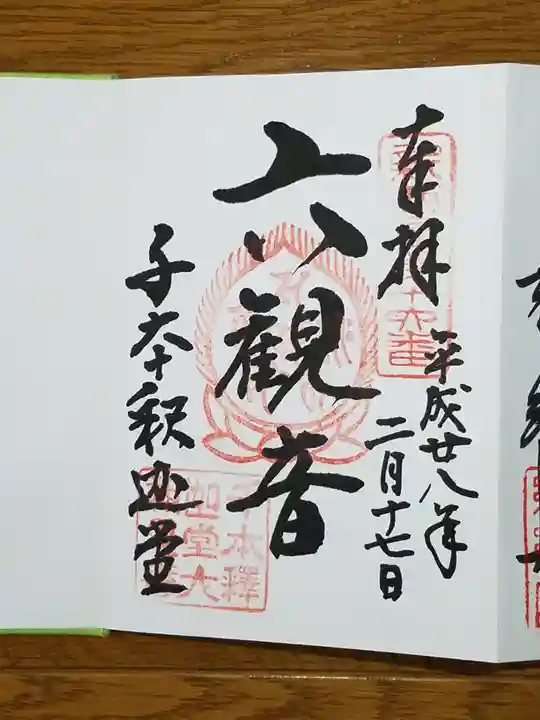 奉拝
平成廿八年
二月十七日
六観音
千本釈迦堂
十六番
本釋
迦堂大